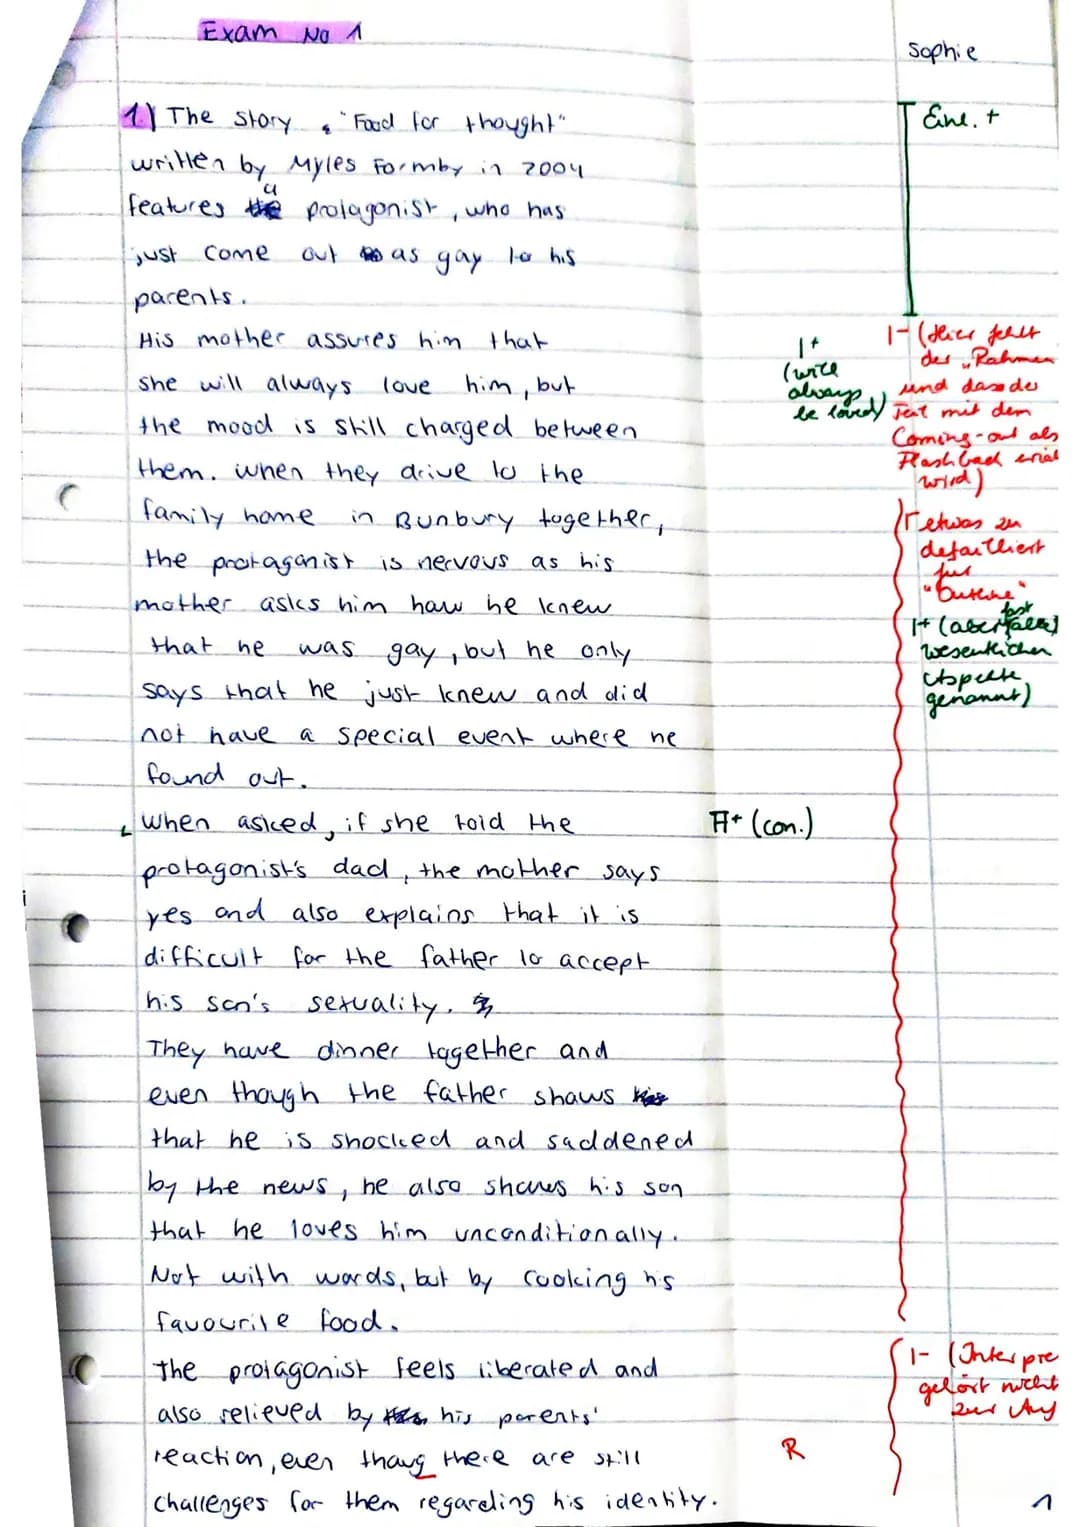 Exam No 1
Sophie
1.) The story, "Food for thought"
written by Myles Formby in 2004
features a protagonist, who has
just come out as gay to his
parents.
His mother assures him that
she will always love him, but
the mood is still charged between
them. when they drive to the
family home in Bunbury together,
the protagonist is nervous as his
mother asks him how he knew
that he was gay, but he only
says that he just knew and did
not have a special event where he
found out.
When asked, if she told the
protagonist's dad, the mother says
yes and also explains that it is
difficult for the father to accept
his son's sexuality.
They have dinner together and
even though the father shows
that he is shocked and saddened
by the news, he also shows his son
that he loves him unconditionally.
Not with words, but by cooking his
favourite food.
The protagonist feels liberated and
also relieved by his parents'
reaction, even thoug there are still
challenges for them regarding his identity.
Einl. +
I+
(will
always
be loved)
I- (Hier fehlt
der "Rahmen
und dass der
Text mit dem
Coming-out als
Flashback
wird)
etwas zu
detailliert
für
"Outline"
I+ (aber fast alle
wesentlichen
Aspekte
genannt)
A+ (con.)
I- (Interpre
gehört nicht
zur Auf
R
1